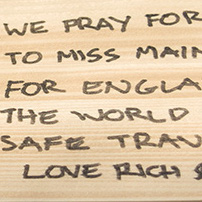 WE PRAY FOR
TO MISS MAIN
FOR ENGLA
THE WORLD
SAFE TRAV
LOVE RICH &